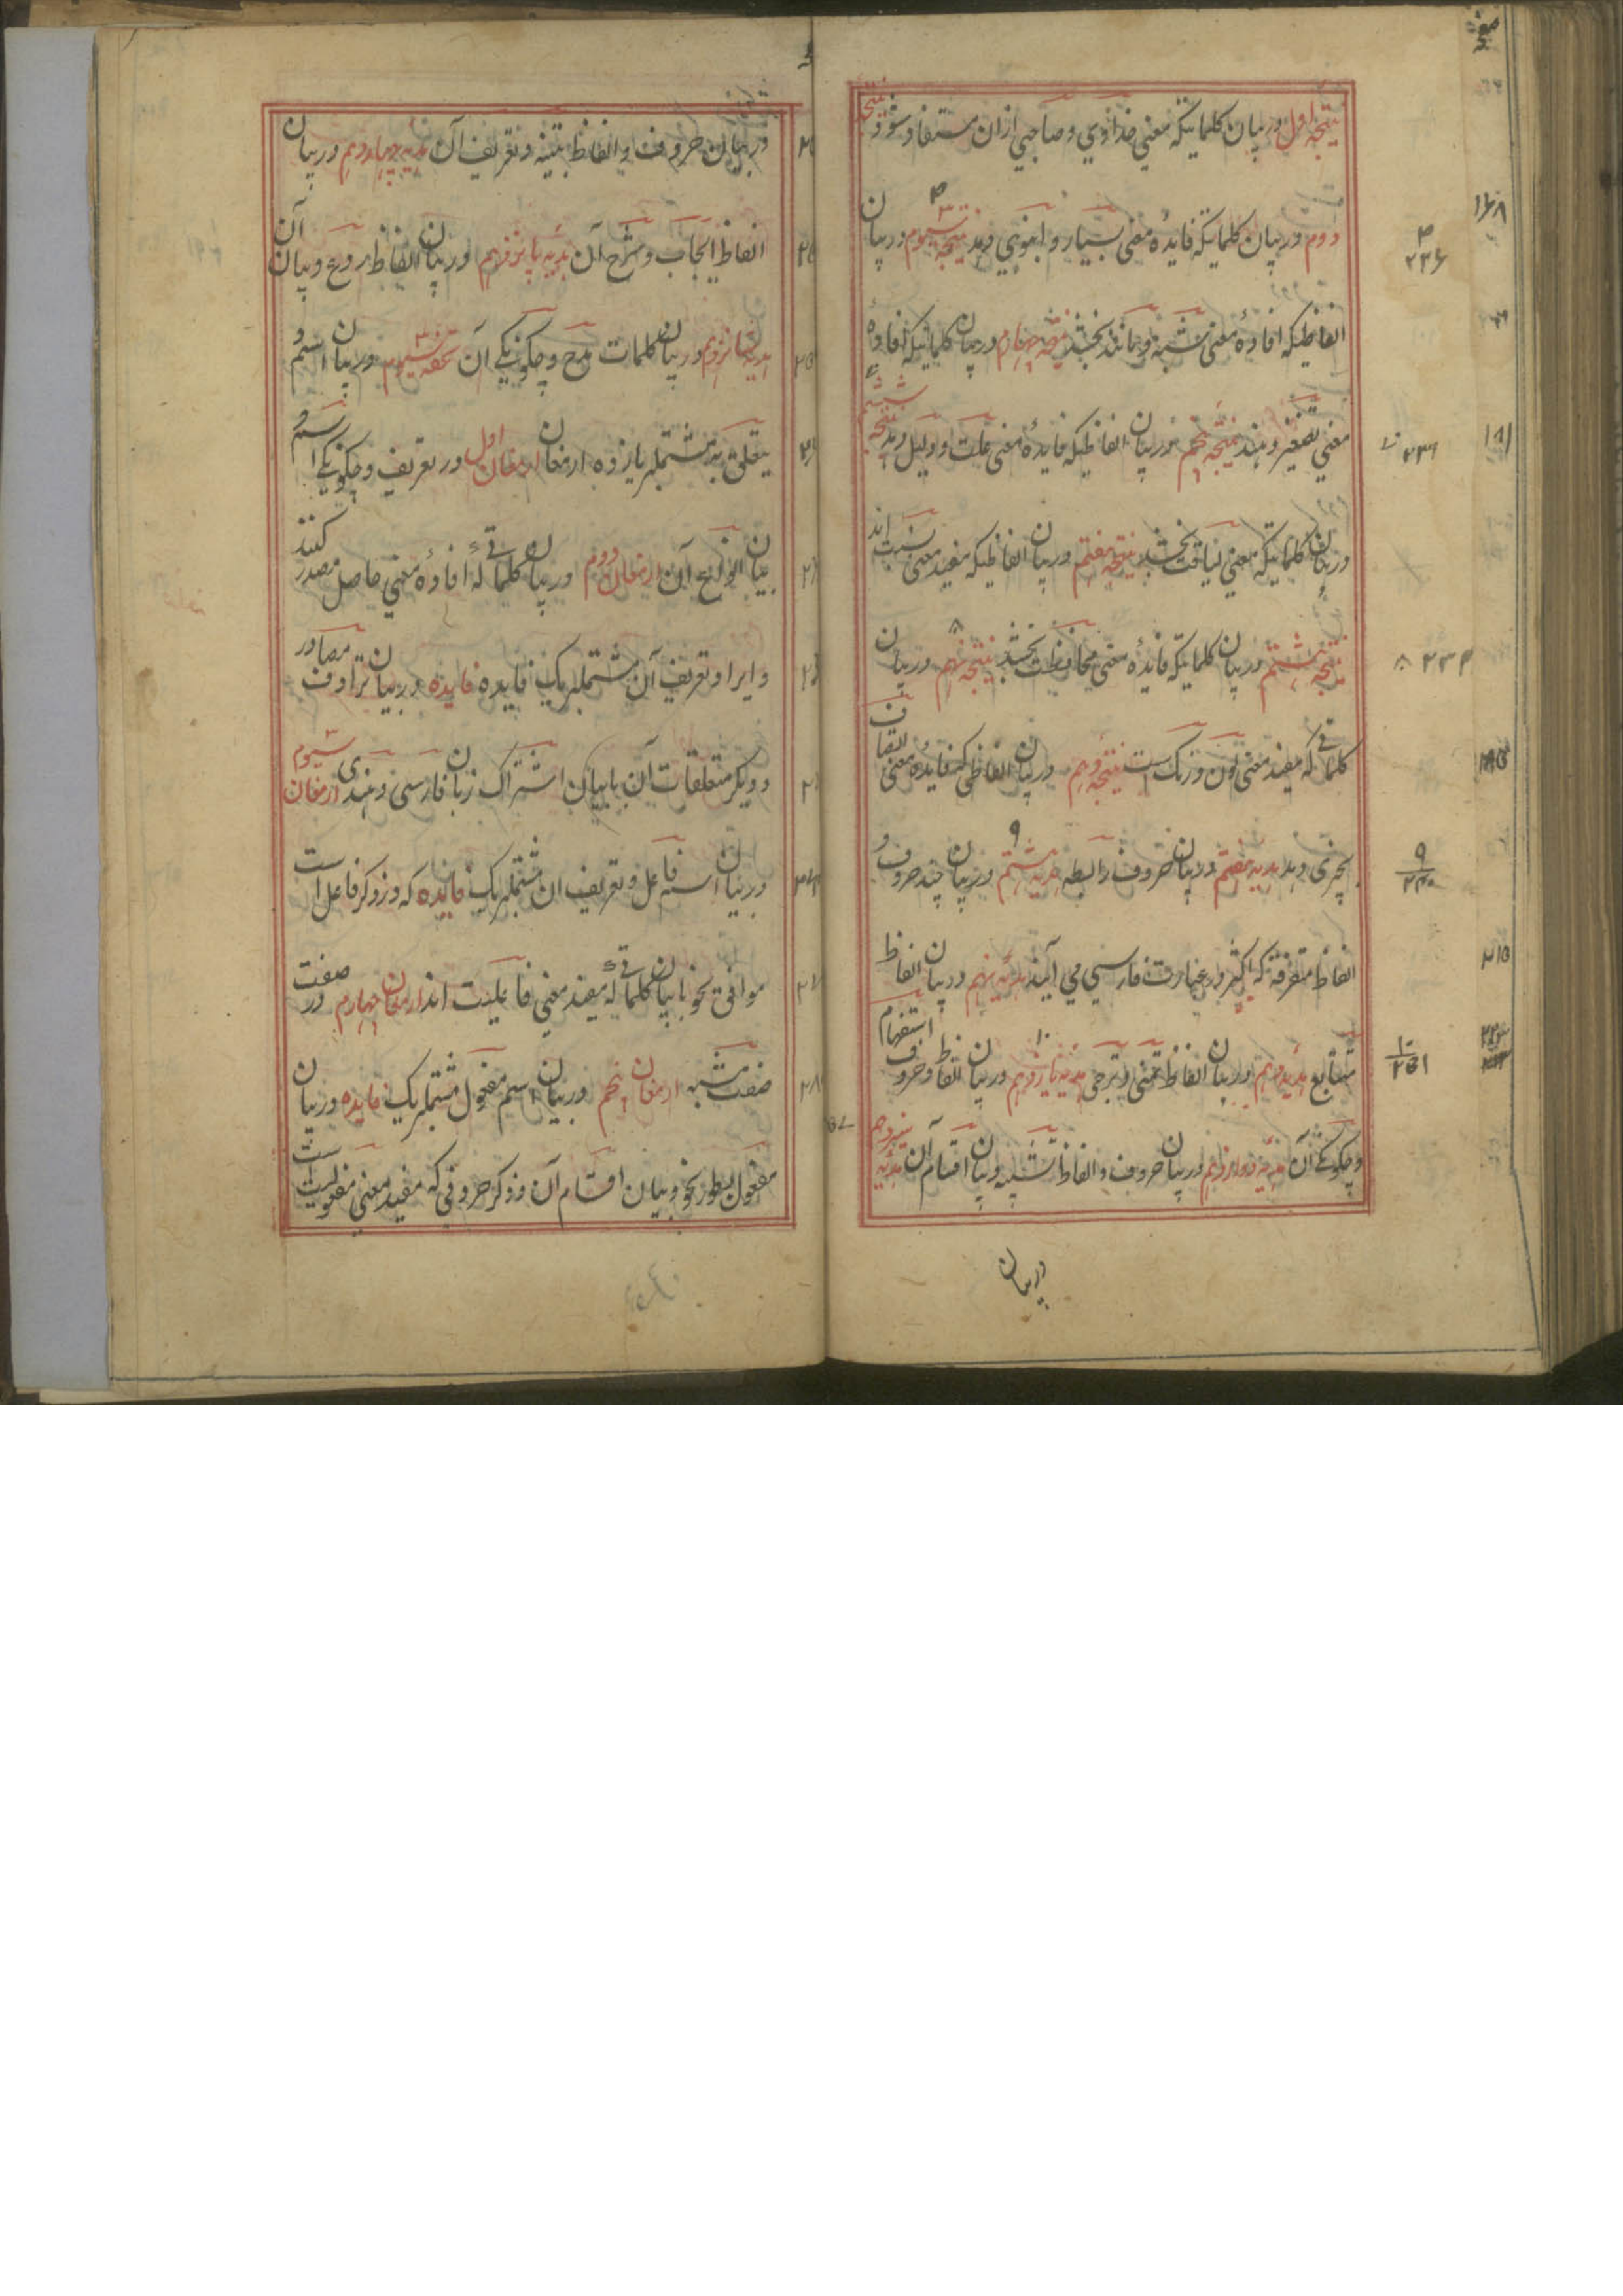 نتیجه اول در بیان کلماتیکه معنی خداوی و صاحبی ازان مستفاد شود نتیجه
دوم در بیان کلماتیکه فایده معنی بسیار و انبوهی دهد نتیجه سیوم در بیان
الفاظیکه افاده معنی شبه و مانند بخشد نتیجه چهارم در بیان کلماتیکه افاده
معنی تصغیر دهند نتیجه پنجم در بیان الفاظیکه فایده معنی علت و دلیل دهد نتیجه ششم
در بیان کلماتیکه معنی لیاقت بخشد نتیجه هفتم در بیان الفاظیکه مفید معنی نسبت اند
نتیجه هشتم در بیان کلماتیکه فایده معنی محافظت بخشد نتیجه نهم در بیان
کلماتی که مفید معنی لون و رنگ است نتیجه دهم در بیان الفاظی که فایده معنی اتصاف
بچیزی دهد هدیه هفتم در بیان حروف رابطه هدیه هشتم در بیان چند حروف و
الفاظ متفرقه که اکثر در عبارت فارسی می آیند هدیه نهم در بیان الفاظ
متتابع هدیه دهم در بیان الفاظ تمنی و ترجی هدیه یازدهم در بیان الفاظ و حروف استفهام
و چگونگی آن هدیه دوازدهم در بیان حروف و الفاظ تشبیه و بیان اقسام آن هدیه سیزدهم
در بیان
در بیان حروف و الفاظ تنبیه و تعریف آن هدیه چهاردهم در بیان
الفاظ ایجاب و شرح آن هدیه پانزدهم در بیان الفاظ روع و بیان آن
هدیه شانزدهم در بیان کلمات مدح و چگونگی آن تحفه سیوم در بیان اسم و
یتعلق به مشتملبر یازده ارمغان ارمغان اول در تعریف و چگونگی اسم و
بیان انواع آن ارمغان دوم در بیان کلماتی که افاده معنی حاصل مصدر کنند
و ایراد تعریف آن مشتملبر یک فایده فایده در بیان ترادف مصادر
و دیگر متعلقات آن با بیان اشتراک زبان فارسی و هندی ارمغان سیوم
در بیان اسم فاعل و تعریف ان مشتملبر یک فایده که در ذکر فاعل است
موافق نحو با بیان کلماتی که مفید معنی فاعلیت اند ارمغان چهارم در صفت
صفت مشبه ارمغان پنجم در بیان اسم مفعول مشتملبر یک فایده در بیان
مفعول بطور نحو و بیان اقسام آن و ذکر حروفی که مفید معنی مفعولیت است